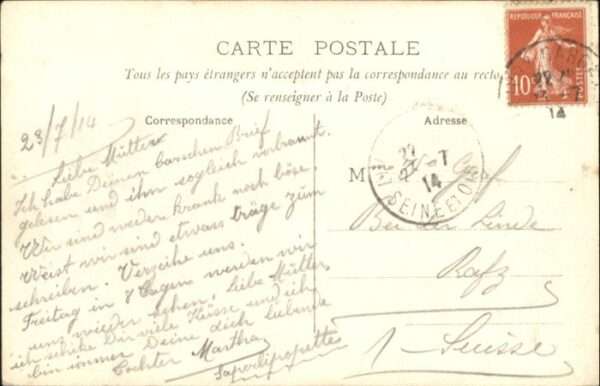 CARTE POSTALE
Tous les pays étrangers n'acceptent pas la correspondance au recto
(Se renseigner à la Poste)
Correspondance
Adresse
RÉPUBLIQUE FRANÇAISE
10
POSTES
22
7
14
23/7/14
Liebe Mütter
Ich habe Deinen Brief
gelesen und ihn sogleich verbrannt.
Wir sind weder krank noch böse
Weist wir sind etwas träge zum
schreiben. Verzeihe uns.
Freitag in 8 Tagen werden wir
uns wieder sehen. Liebe Mütter
ich schicke Dir viele Küsse und ich
bin immer Deine dich liebende
Tochter Martha
Saperlipopettes
22
-7
14
SEINE ET OISE
M
Graf
Bei der Linde
Rafz
Suisse